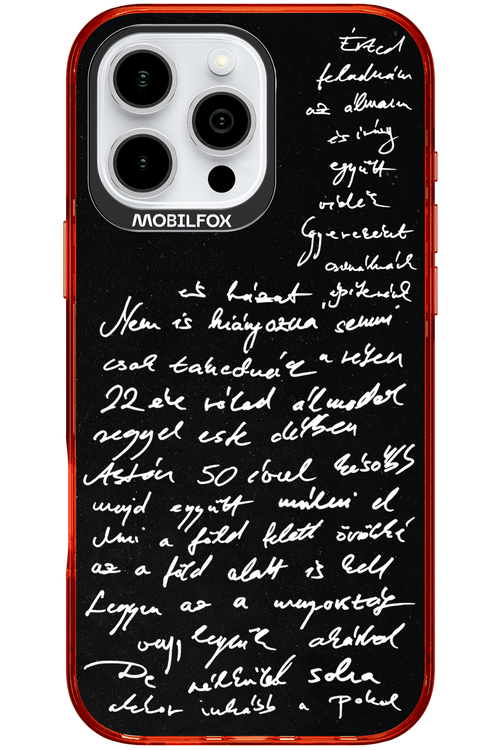 MOBILFOX
Érted
feladnám
az álmam
és így
együtt
veled
Gyerekeket
csinálnék
és házat építenék
Nem is hiányozna semmi
csak takednék a
22 éve rólad álmodok
reggel este délben
Aztán 50 évvel később
majd együtt múlni el
Ami a föld felett örökké
az a föld alatt is kell
Legyen az a mennyország
vagy legyünk akárhol
De nélküled soha
akkor inkább a pokol